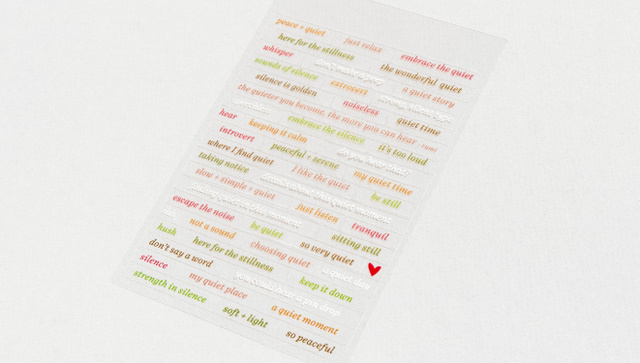 peace + quiet just relax embrace the quiet
here for the stillness
whisper the wonderful quiet
sounds of silence extrovert a quiet story
silence is golden noiseless quiet time
the quieter you become, the more you can hear
hear embrace the silence it's too loud
introvert keeping it calm
where I find quiet peaceful + serene my quiet time
taking notice I like the quiet be still
slow + simple + quiet
just listen tranquil
escape the noise be quiet sitting still
hush not a sound so very quiet
don't say a word here for the stillness choosing quiet keep it down
silence my quiet place you could hear a pin drop
strength in silence a quiet moment
soft + light so peaceful